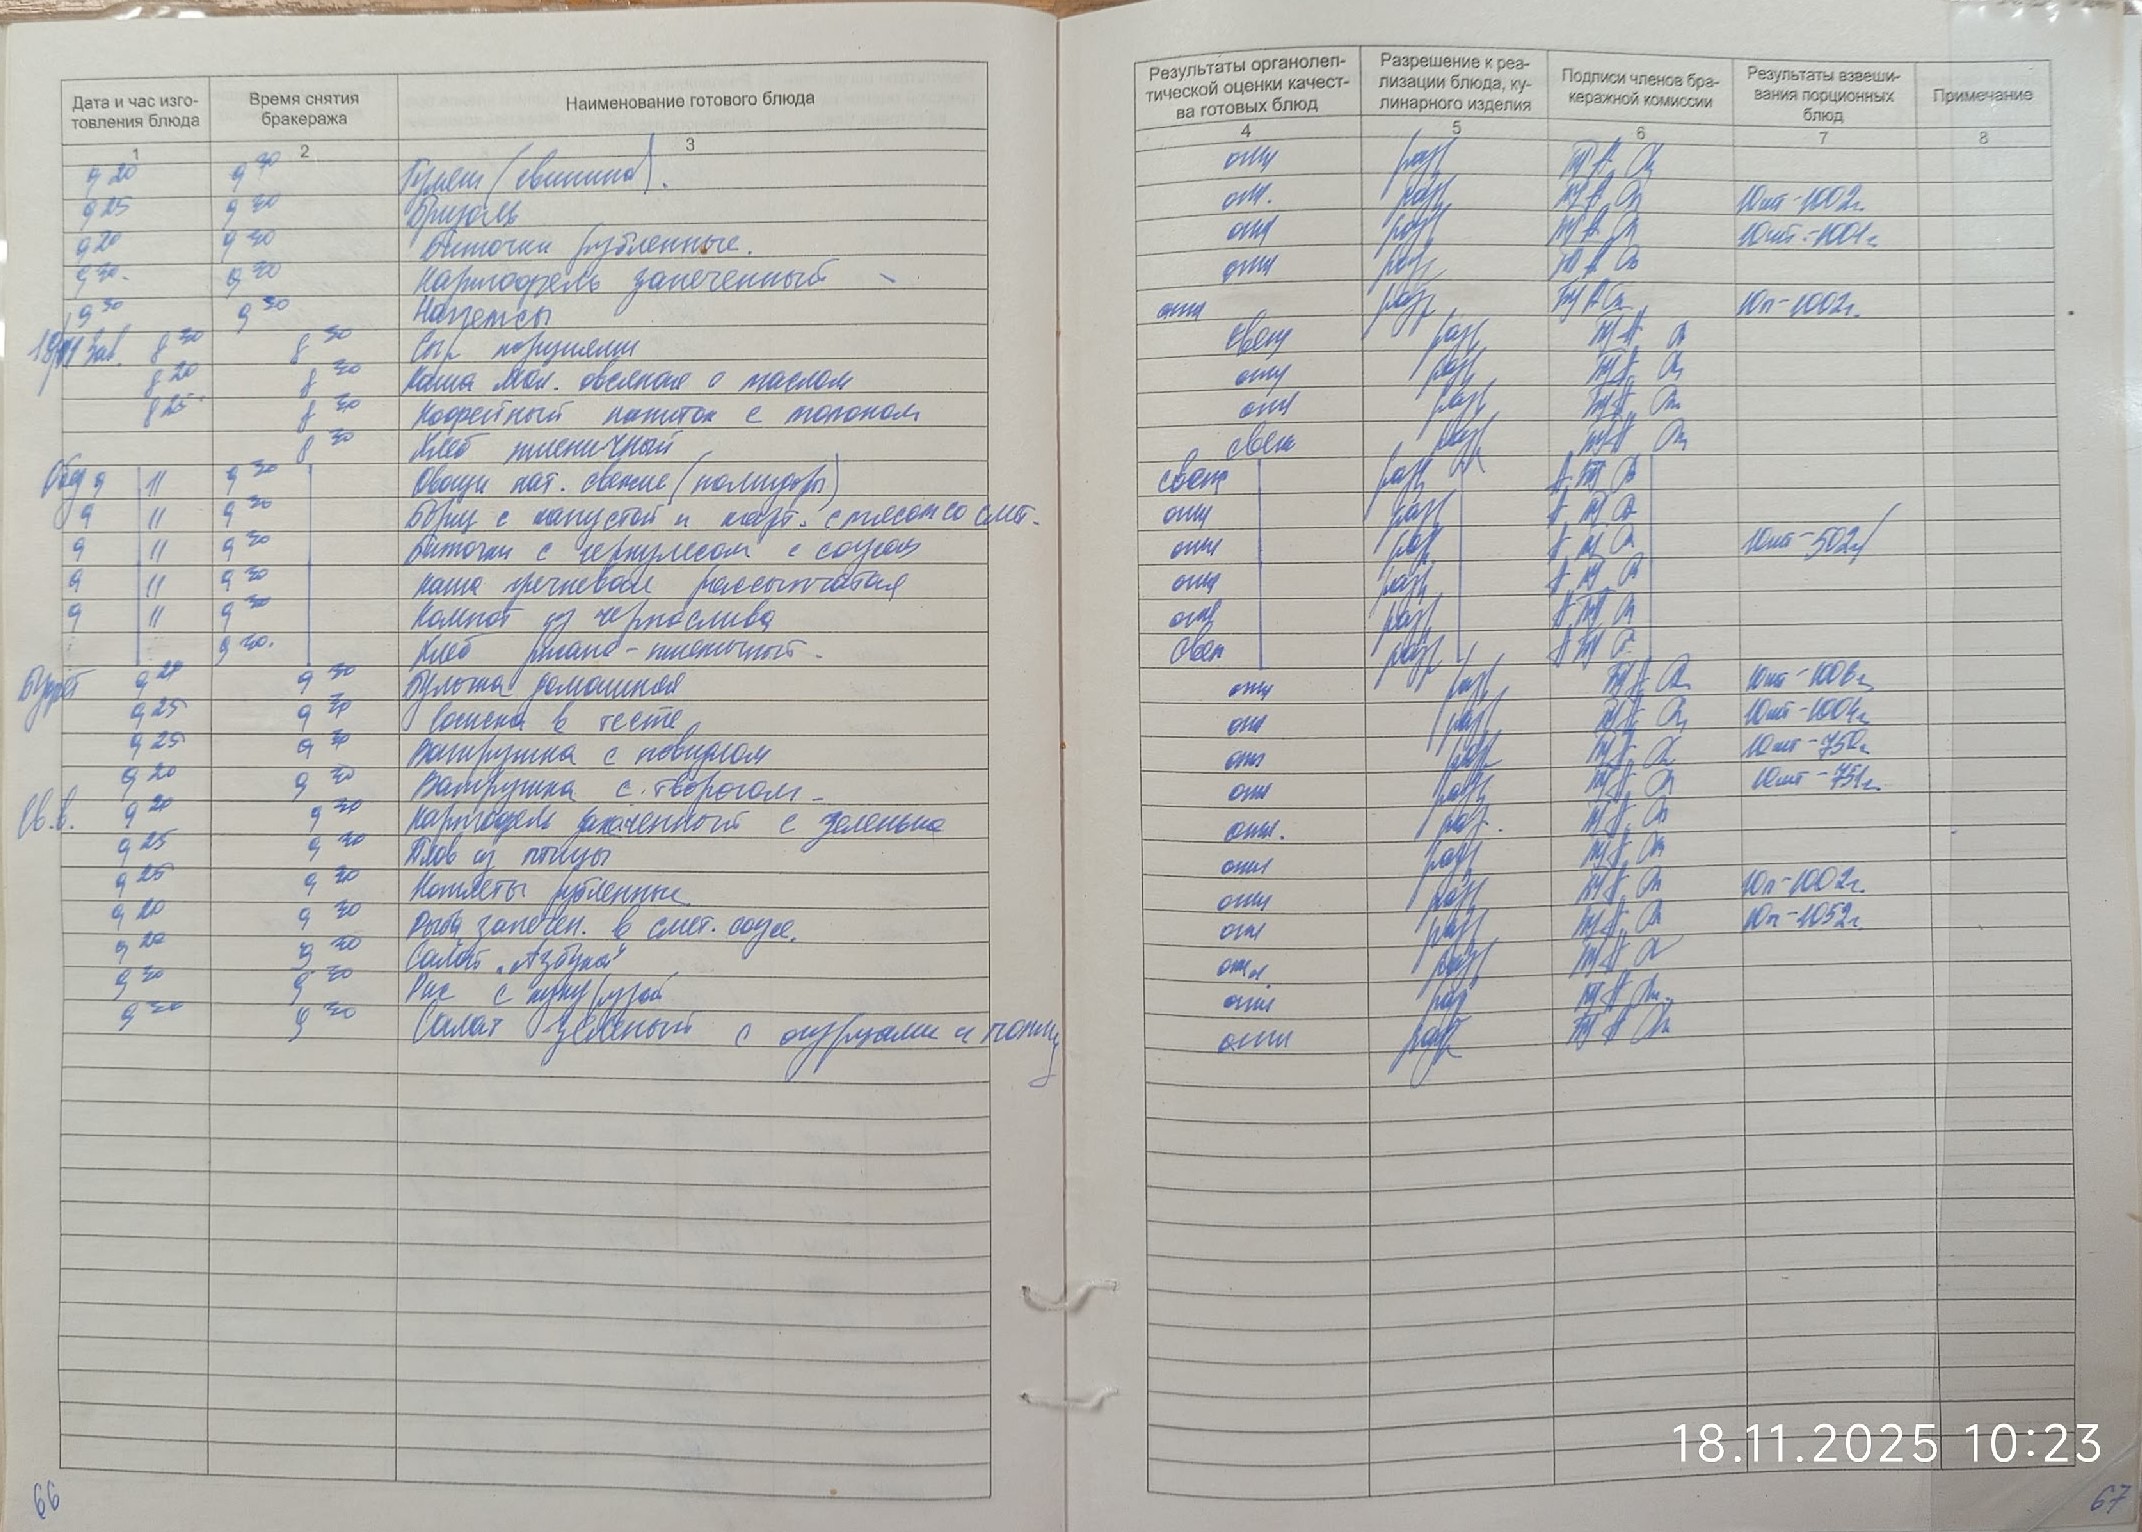 Дата и час изго-
товления блюда
Время снятия
бракеража
Наименование готового блюда
Результаты органолеп-
тической оценки качест-
ва готовых блюд
Разрешение к реа-
лизации блюда, ку-
линарного изделия
Подписи членов бра-
керажной комиссии
Результаты взвеши-
вания порционных
блюд
Примечание
1 2 3 4 5 6 7 8
9 20 9 30 Гуляш (свинина). отл разр
9 25 9 30 Бризоль отл. разр 10шт-1002г.
9 20 9 30 Биточки рубленные. отл разр 10шт-1001г
9 30 9 30 Картофель запеченный отл разр
9 30 9 30 Наггетсы отл разр 10п-1002г.
18/11 Зав. 8 30 8 30 Сыр порциями свеж разр
8 20 8 30 Каша мол. овсяная с маслом отл разр
8 25 8 30 Кофейный напиток с молоком отл разр
8 30 Хлеб пшеничный свеж разр
Обед 9 11 9 30 Овощи нат. свежие (помидоры) свеж разр
9 11 9 30 Борщ с капустой и карт. с мясом со смет. отл разр
9 11 9 30 Биточки с геркулесом с соусом отл разр 10шт-502г
9 11 9 30 Каша гречневая рассыпчатая отл разр
9 11 9 30 Компот из чернослива отл разр
9 30. Хлеб ржано-пшеничный. свеж разр
Буфет 9 20 9 30 Булочка домашняя отл разр 10шт-1008г
9 25 9 30 Сосиска в тесте отл разр 10шт-1004г
9 25 9 30 Ватрушка с повидлом отл разр 10шт-750г
9 20 9 30 Ватрушка с творогом отл разр 10шт-751г.
Св.в. 9 20 9 30 Картофель запеченный с зеленью отл. разр.
9 25 9 30 Плов из птицы отл разр
9 25 9 30 Котлеты рубленные отл разр 10п-1002г.
9 20 9 30 Рыба запечен. в смет. соусе. отл разр 10п-1052г.
9 20 9 30 Салат „Азбука" отл. разр
9 30 9 30 Рис с кукурузой отл разр
9 30 9 30 Салат зеленый с огурцами и отл разр
66
67
18.11.2025 10:23